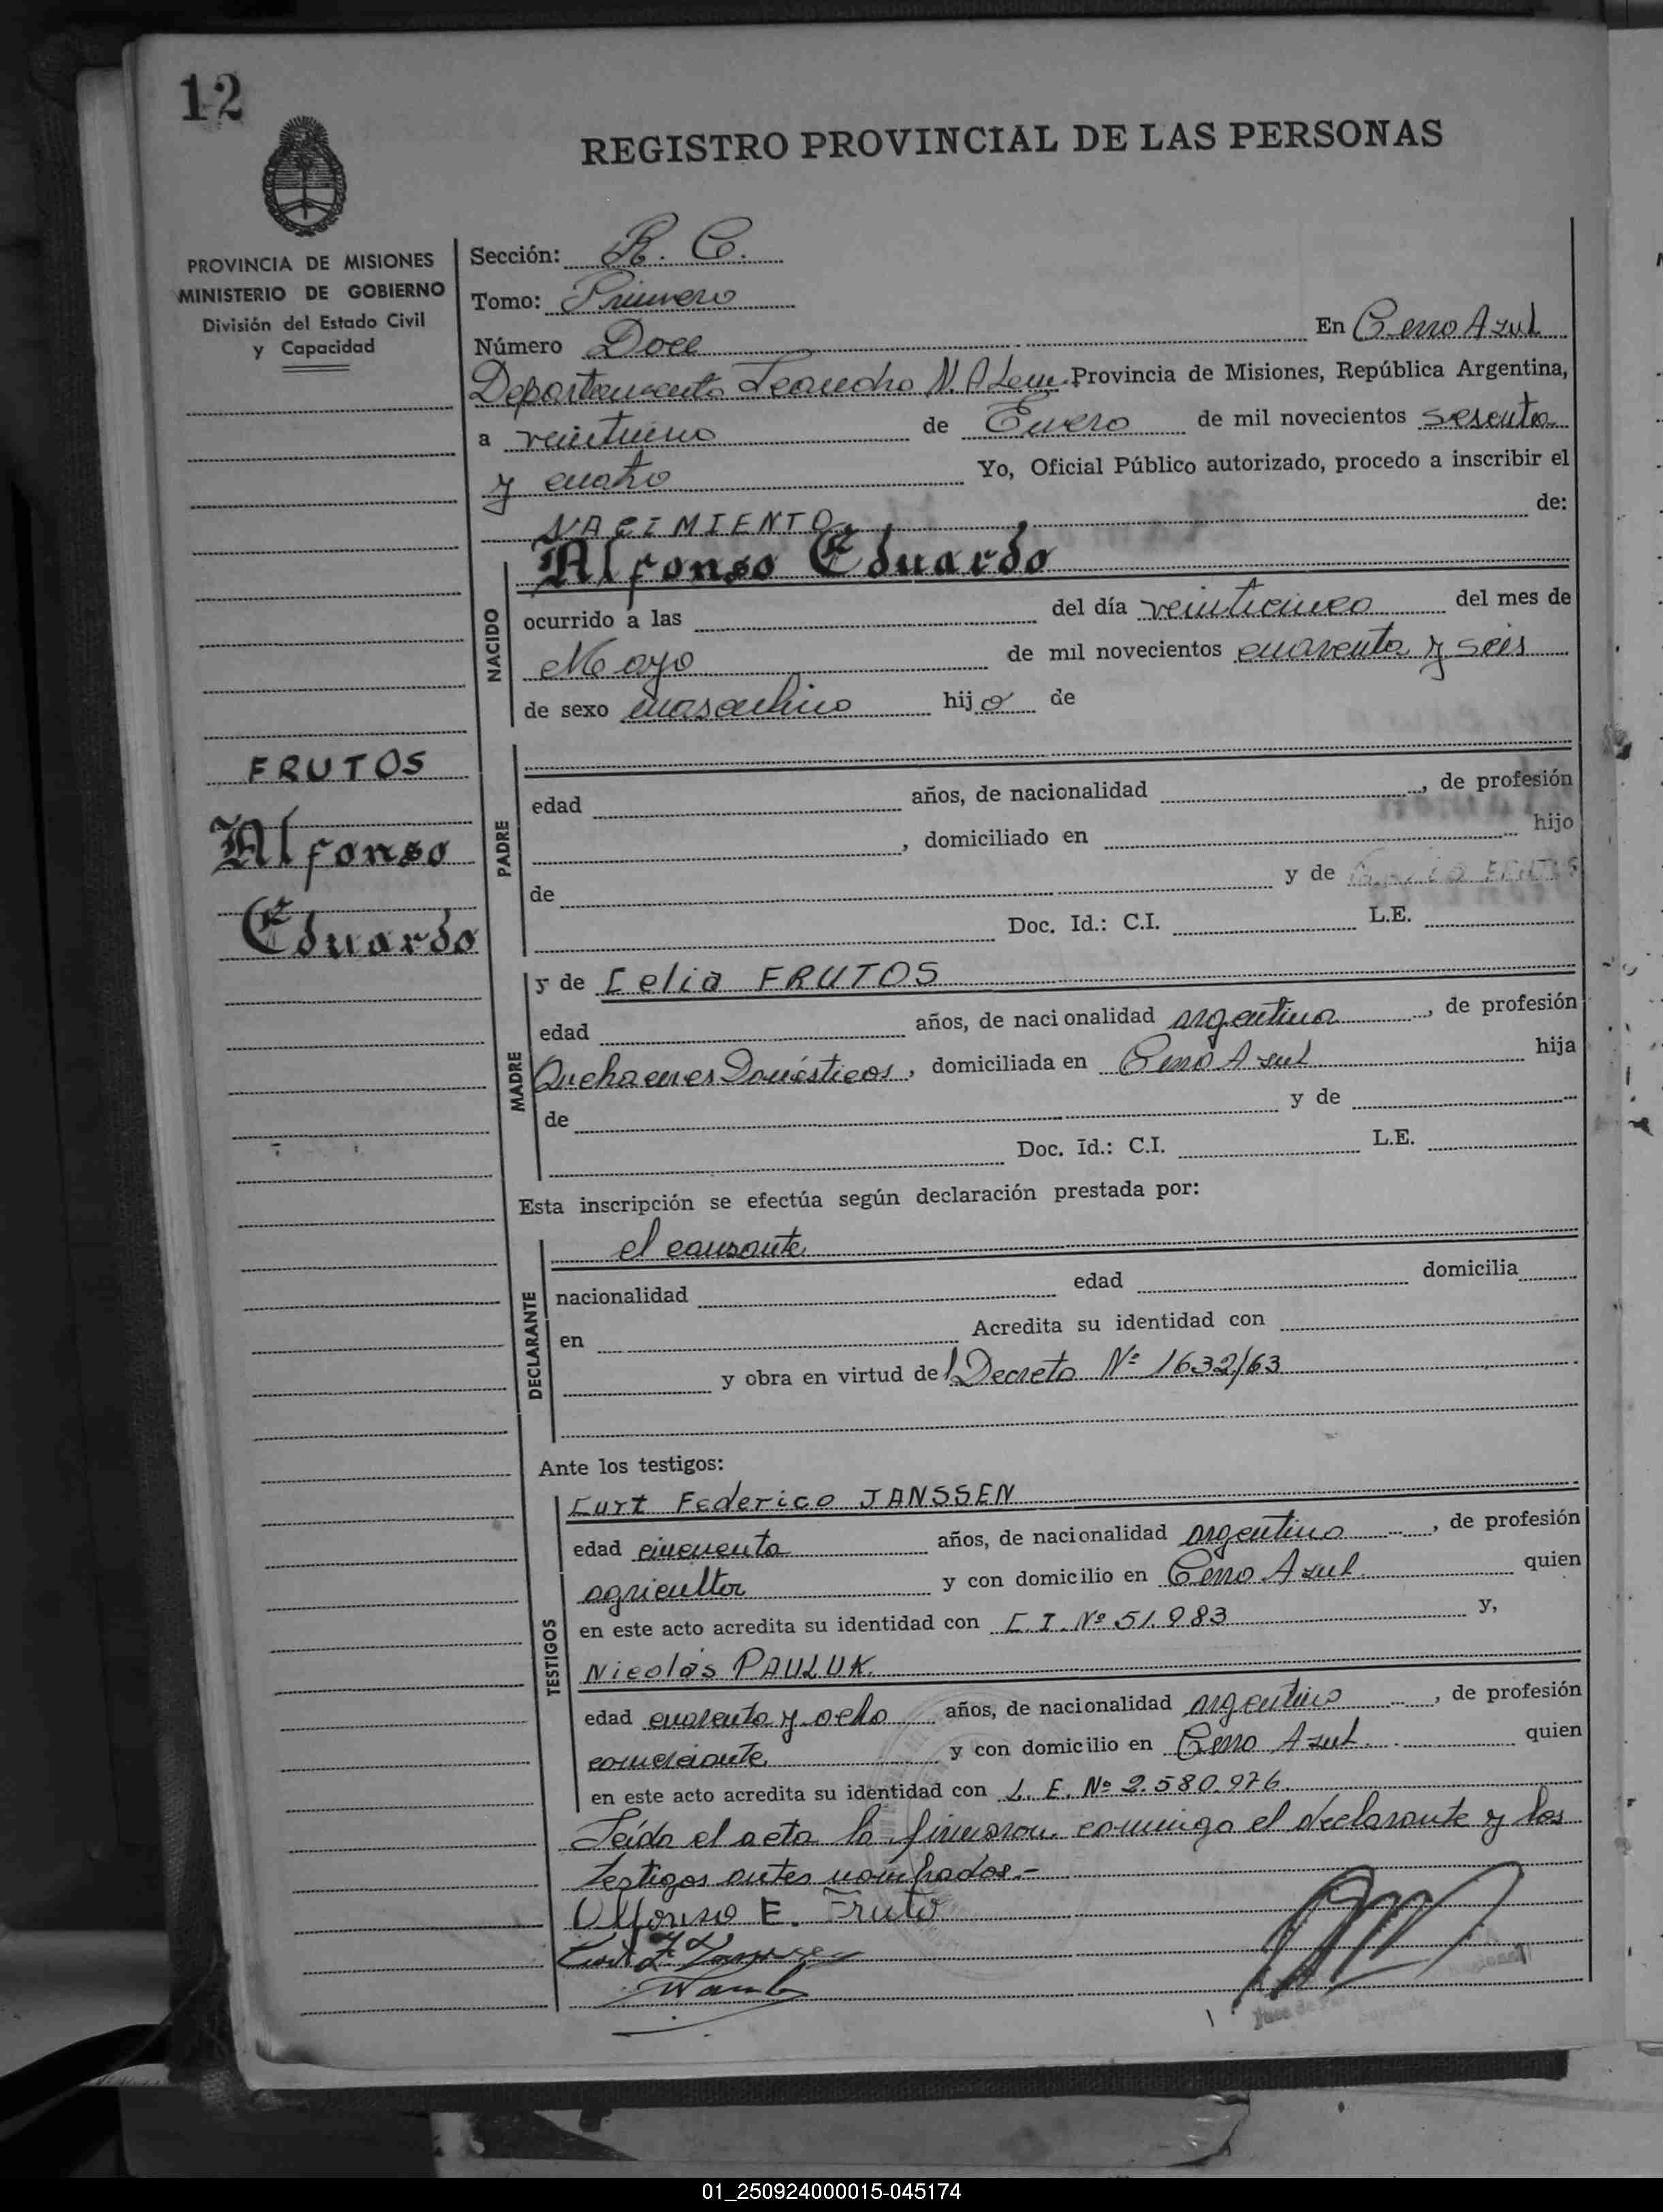 12
REGISTRO PROVINCIAL DE LAS PERSONAS
PROVINCIA DE MISIONES
MINISTERIO DE GOBIERNO
División del Estado Civil
y Capacidad
FRUTOS
Alfonso
Eduardo
Sección: R. C.
Tomo: Primero
Número Doce En Cerro Azul
Departamento Leandro N. Alem Provincia de Misiones, República Argentina,
a veintiuno de Enero de mil novecientos sesenta
y cuatro Yo, Oficial Público autorizado, procedo a inscribir el
NACIMIENTO de:
NACIDO
Alfonso Eduardo
ocurrido a las del día veinticinco del mes de
Mayo de mil novecientos cuarenta y seis
de sexo masculino hijo de
PADRE
edad años, de nacionalidad , de profesión
, domiciliado en hijo
de y de FRUTOS
Doc. Id.: C.I. L.E.
MADRE
y de Celia FRUTOS
edad años, de nacionalidad argentina, de profesión
Quehaceres Domésticos, domiciliada en Cerro Azul hija
de y de
Doc. Id.: C.I. L.E.
Esta inscripción se efectúa según declaración prestada por:
DECLARANTE
el causante
nacionalidad edad domicilia
en Acredita su identidad con
y obra en virtud del Decreto Nº 1632/63
Ante los testigos:
TESTIGOS
Curt Federico JANSSEN
edad cincuenta años, de nacionalidad argentino, de profesión
agricultor y con domicilio en Cerro Azul quien
en este acto acredita su identidad con C.I. Nº 51.983 y,
Nicolás PAULUK
edad cuarenta y ocho años, de nacionalidad argentino, de profesión
comerciante y con domicilio en Cerro Azul quien
en este acto acredita su identidad con L. E. Nº 2.580.976
Leída el acta la firmaron conmigo el declarante y los
testigos antes nombrados.-
Alfonso E. Fruto
Curt F. Janssen
Juez de Paz
Suplente
01_250924000015-045174